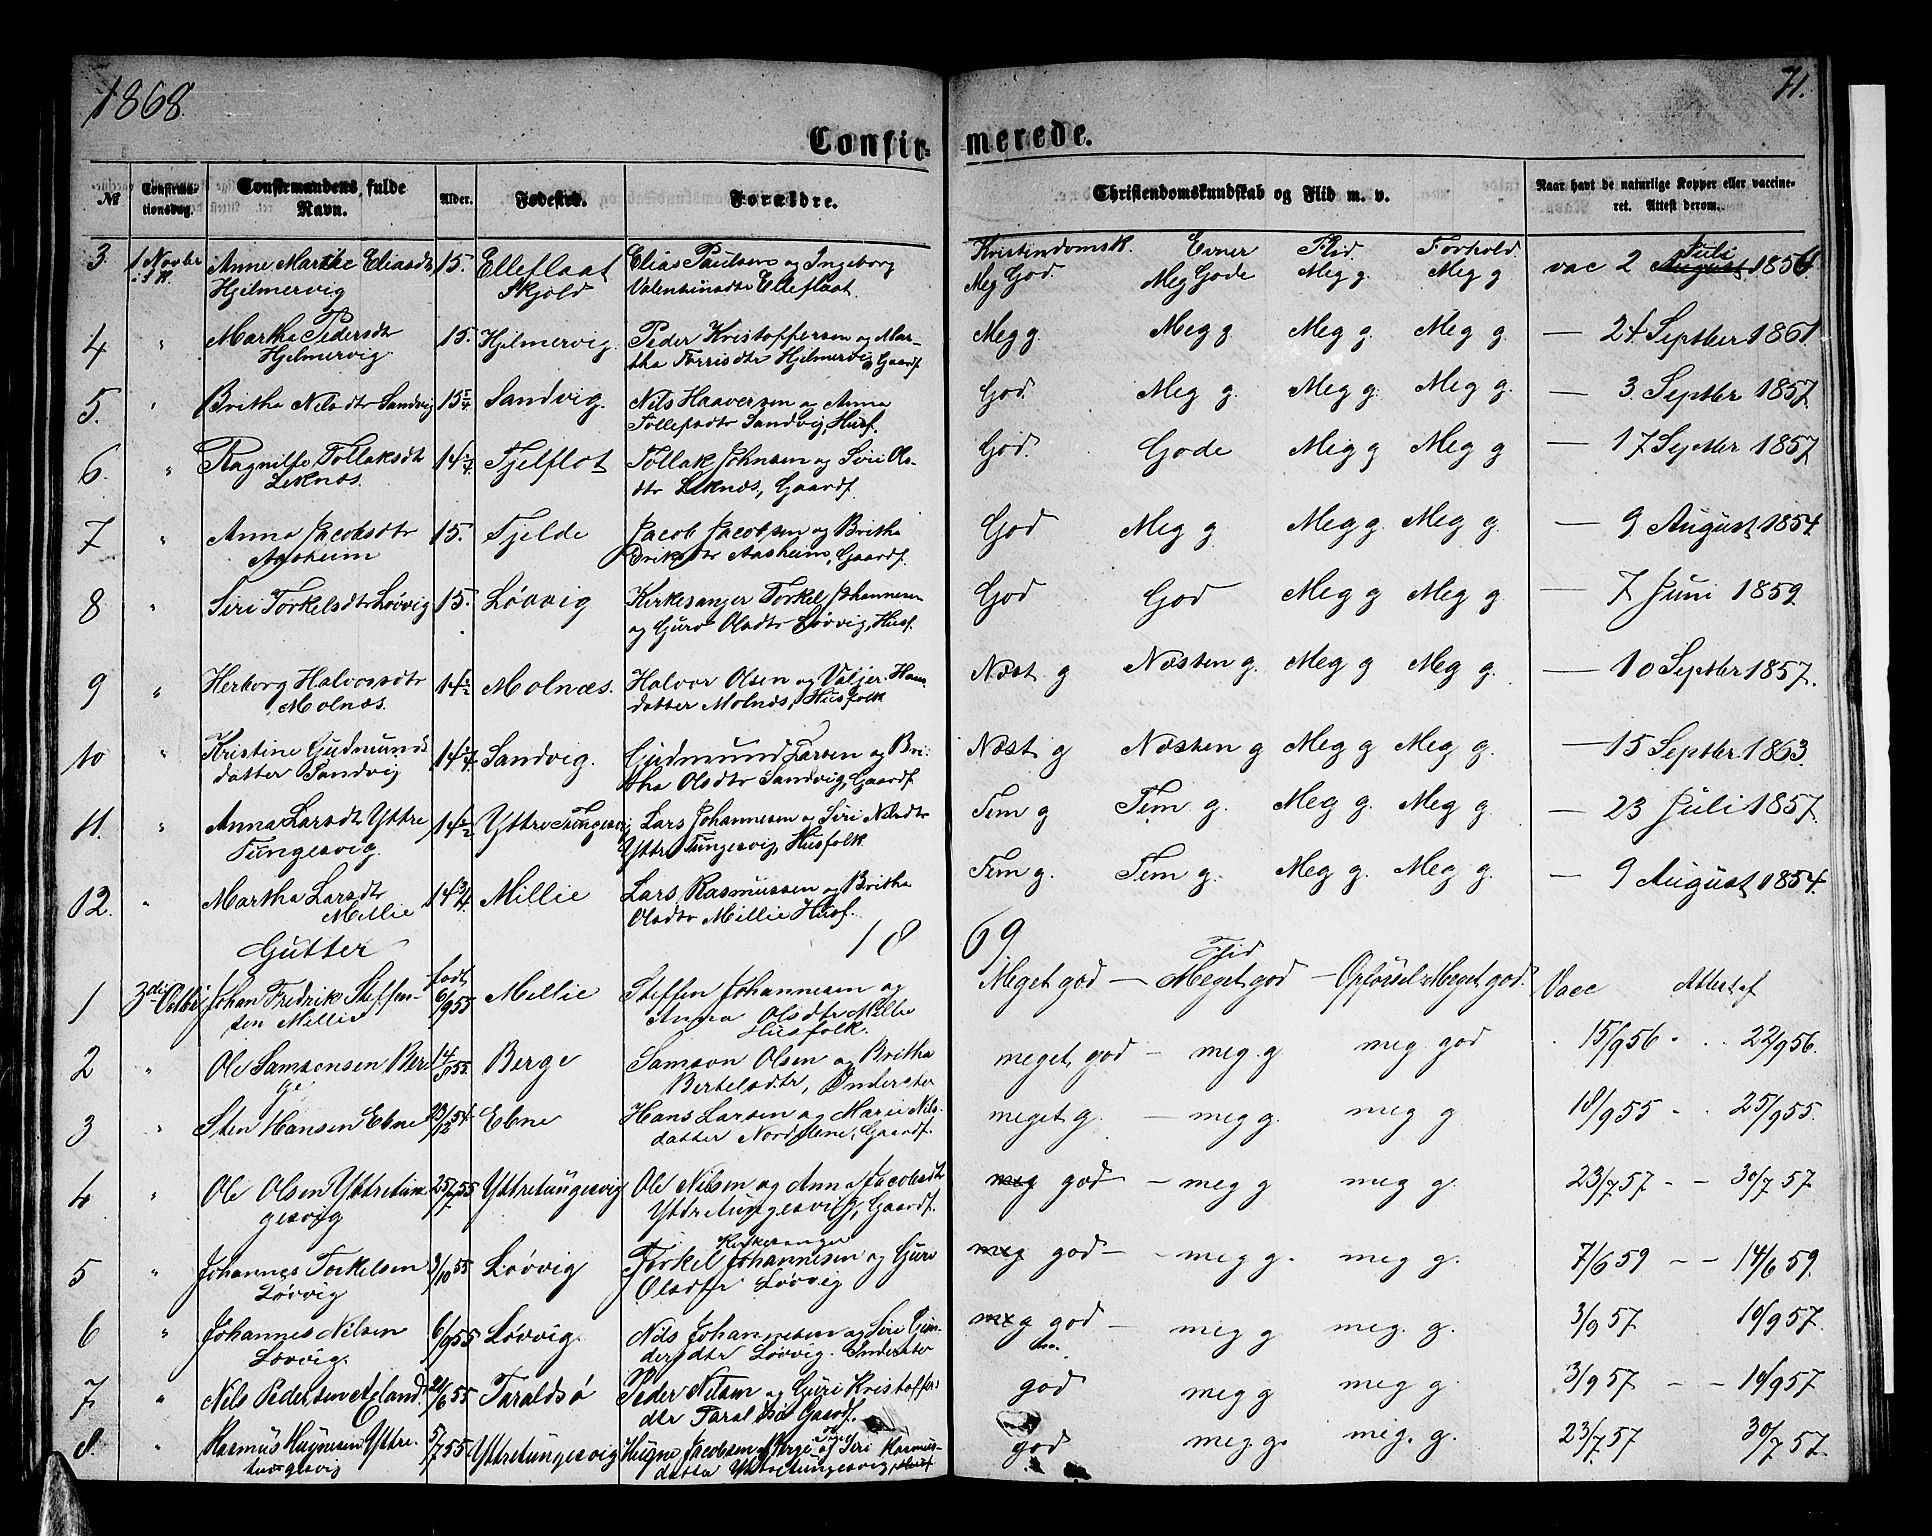 1868.
71.
Confir-
merede.
№
Confirma-
tionsdag.
Confirmandens fulde
Navn.
Alder.
Fødested.
Forældre.
Christendomskundskab og Flid m. v.
Naar havt de naturlige Kopper eller vaccine-
ret. Attest derom.
Kristindomsk. Evner Flid. Forhold.
3 1 Novbr Anne Marthe Eliasdtr 15. Elleflaat Elias Paulsen og Ingeborg Meg God. Meg Gode Meg g. Meg g vac 2 Juli 1856
Hjelmervig Skjold Valentinsdtr Elleflaat.
4 " Martha Pedersdt 15. Hjelmervig Peder Kristoffersen og Mar- Meg g. Meg g Meg g. Meg g. — 24 Septber 1861
Hjelmervig tha Torrisdtr Hjelmervig Gaardf
5. " Britha Nilsdtr Sandvig 15 1/4 Sandvig. Nils Haaversen og Anna God. Meg g. Meg g. Meg g. — 3 Septbr 1857.
Tollefsdtr Sandvig, Husf.
6 " Ragnilde Tollaksdt 14 1/4 Fjelflot Tollak Johnsen og Siri Ols- God. Gode Meg g Meg g — 17 Septbr 1857
Leknæs. dtr Leknæs, Gaardf.
7 " Anna Jacobsdtr 15. Fjelde Jacob Jacobsen og Britha God Meg g. Meg g. Meg g. — 9 August 1854.
Aasheim Eriksdtr Aasheim, Gaardf.
8 " Siri Torkelsdtr Løvvig 15. Løvvig Kirkesanger Torkel Johannesen God God Meg g Meg g. — 7 Juni 1859.
og Guro Olsdtr Løvvig, Husf.
9 " Herborg Halvorsdtr 14 1/2 Molnæs. Halvor Olsen og Valjer Han Næst g Næsten g. Meg g Meg g. — 10 Septbr 1857.
Molnæs. datter Molnæs, Husfolk
10 " Kristine Gudmunds 14 1/4 Sandvig. Gudmund Larsen og Bri- Næst g Næsten g Meg g Meg g. — 15 Septbr. 1863.
datter Sandvig tha Olsdtr Sandvig, Gaardf.
11. " Anna Larsdtr Yttre 14 1/2 Yttre Tungesvig Lars Johannesen og Siri Nilsdtr Tem g Tem g. Meg g. Meg g. — 23 Juli 1857.
Tungesvig. Yttre Tungesvig, Husfolk.
12. " Martha Larsdtr 14 3/4 Millie Lars Rasmussen og Britha Tem g. Tem g. Meg g. Meg g. — 9 August 1854.
Millie Olsdtr Millie Husf.
Gutter 18 69
Flid
1 3die Octbr Johan Fredrik Steffen- født 6/9 55 Millie Steffen Johannesen og Meget god — Meget god — Opførsel Meget god. Vacc Attest af
sen Millie Anna Olsdtr Millie
Husfolk.
2 " Ole Samsonsen Ber- 14/9 55 Berge Samson Olsen og Britha meget god — meg. g meg god 15/9 56 22/9 56.
ge Bertelsdtr, Inderster
3 " Sten Hansen Ebne 23/12 54 Ebne Hans Larsen og Marie Nils- meget g. — meg g. meg g 18/9 55 - 25/9 55.
datter Nordstene, Gaardf.
4 " Ole Olsen Yttretun 25/7 55 Yttretungesvig Ole Nilsen og Anna Jacobsdt meg god — meg g meg g. 23/7 57 - - 30/7 57
gesvig Yttretungesvig, Gaardf.
Kirkesanger
5 " Johannes Torkelsen 3/10 55 Løvvig Torkel Johannesen og Guro meg god — meg g. meg g. 7/6 59 - - 14/6 59.
Løvvig Olsdtr Løvvig
6 " Johannes Nilsen 6/9 55 Løvvig. Nils Johannesen og Siri Gun meg god — meg g meg. g. 3/9 57 10/9 57.
Løvvig. dersdtr Løvvig. Inderster
7 " Nils Pedersen Aeland 21/6 55 Taraldsø Peder Nilsen og Guri Kristoffer- god meg g meg g. 3/9 57 - - 10/9 57
dtr Taraldsø Gaardf.
8. " Rasmus Hugnesen Yttre. 5/7 55 Yttretungesvig Hugne Jacobsen Berge og Siri Rasmus- god meg. g. meg. g. 23/7 57 30/7 57.
tungesvig datter Yttretungesvig, Husf